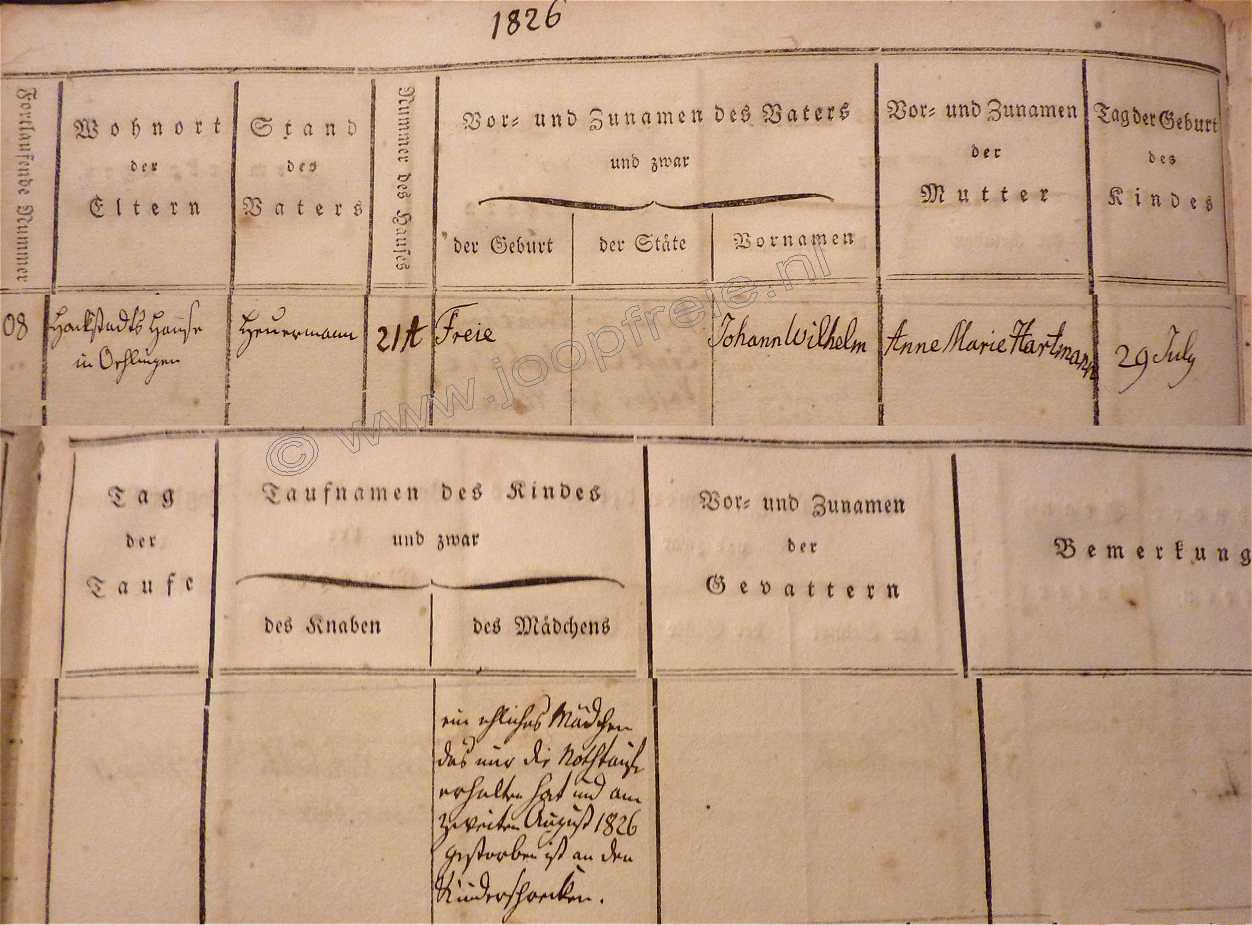 1826
Fortlaufende Nummer
Wohnort
der
Eltern
Stand
des
Vaters
Nummer des Hauses
Vor- und Zunamen des Vaters
und zwar
der Geburt
der Stäte
Vornamen
Vor- und Zunamen
der
Mutter
Tag der Geburt
des
Kindes
08
Hackstadts Hause
in
Heuermann
21A
Freie
Johann Wilhelm
Anne Marie Hartmann
29 July
© www.joopfreie.nl
Tag
der
Taufe
Taufnamen des Kindes
und zwar
des Knaben
des Mädchens
Vor- und Zunamen
der
Gevattern
Bemerkung
ein ehliches Mädchen
das nur die Nothtaufe
erhalten hat und am
zweiten August 1826
gestorben ist an den